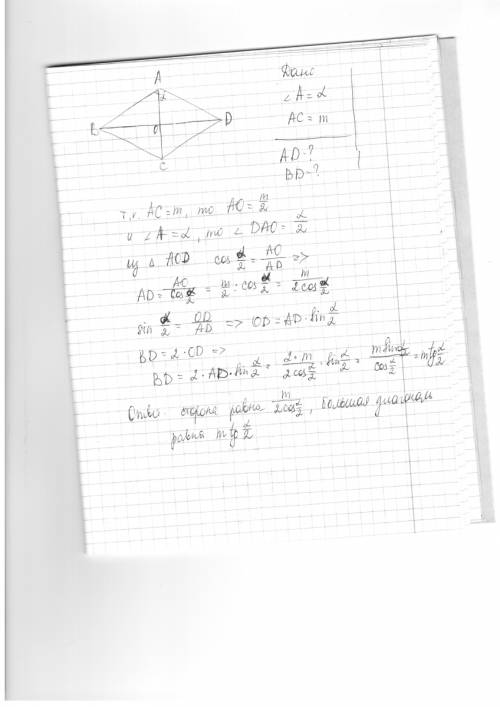 A
α
B
O
D
C
Дано
∠A = α
AC = m
AD-?
BD-?
т.к. AC = m, то AO = m/2
и ∠A = α, то ∠DAO = α/2
из Δ AOD cos α/2 = AO/AD =>
AD = AO/cos α/2 = m/2 · cos α/2 = m/2cos α/2
sin α/2 = OD/AD => OD = AD · sin α/2
BD = 2 · OD =>
BD = 2 · AD · sin α/2 = 2 · m/2cos α/2 · sin α/2 = m sin α/2/cos α/2 = m tg α/2
Ответ: сторона равна m/2cos α/2, большая диагональ
равна m tg α/2